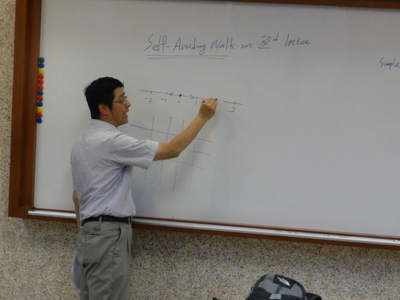 Self-Avoiding Walk on ℤᵈ lattice
Simple
-2 -1 0